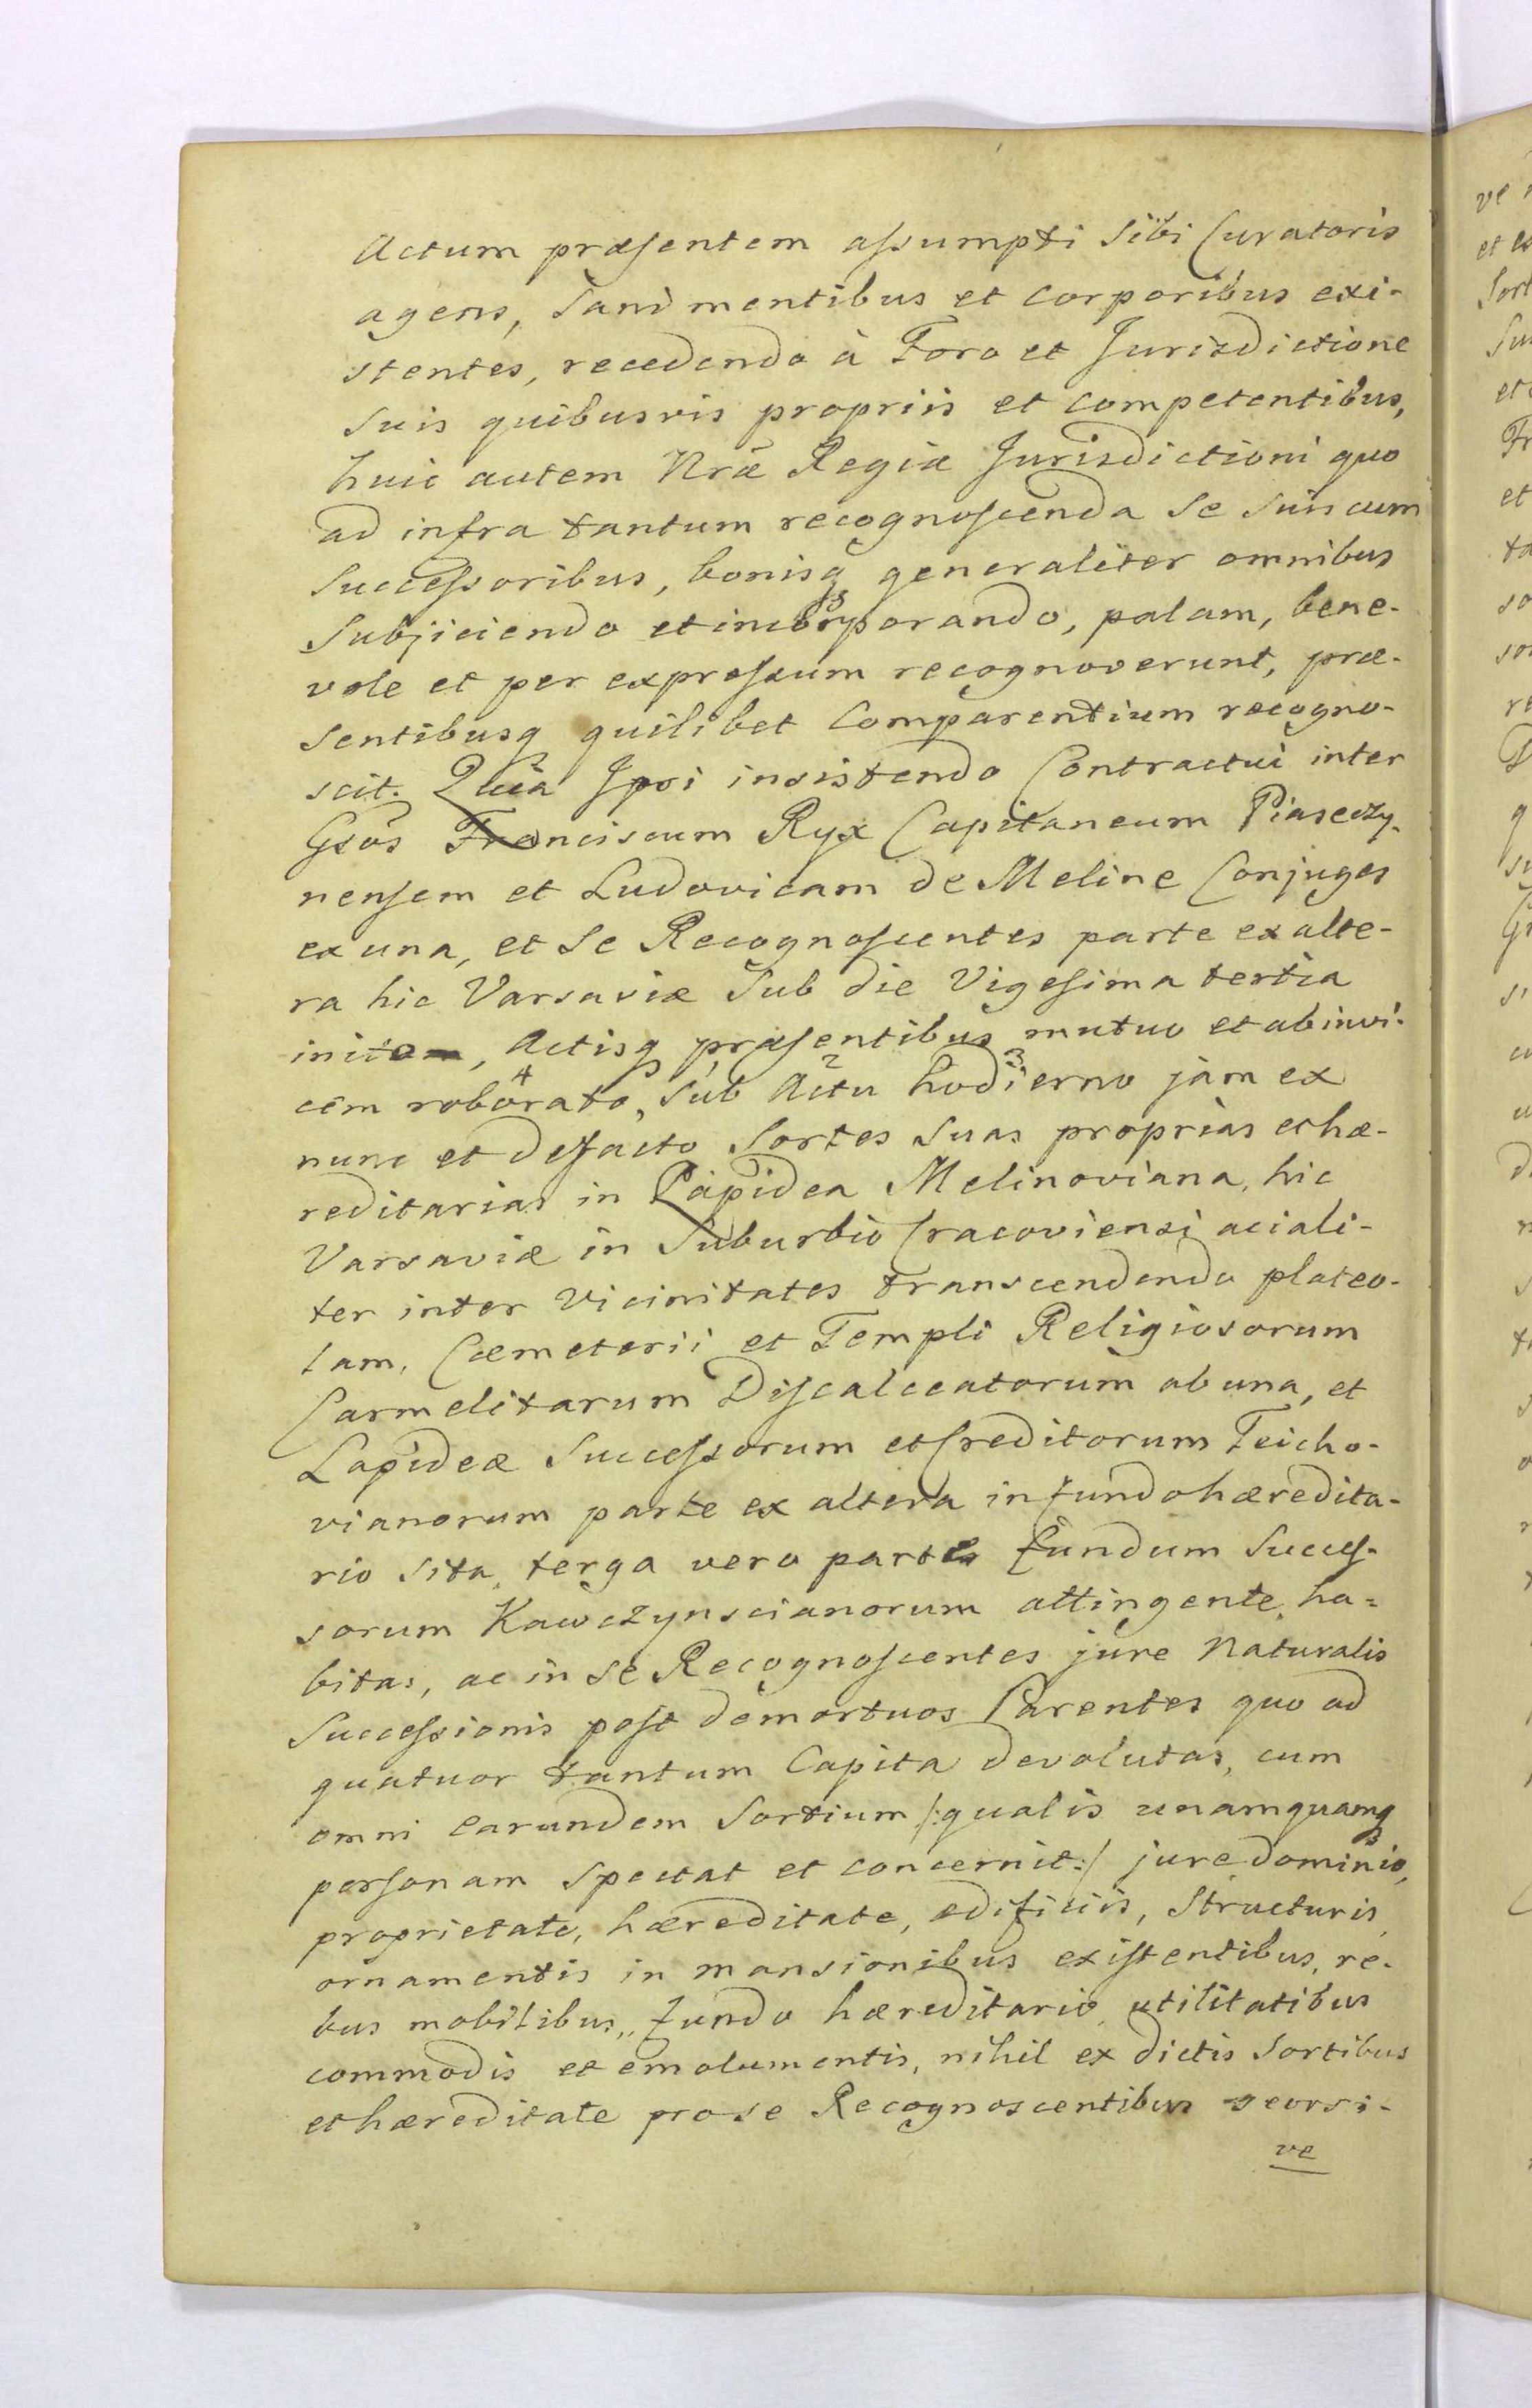 Actum præsentem assumpti sibi Curatoris
agens, sani mentibus et corporibus exi-
stentes, recedendo à Foro et Jurisdictione
suis quibusvis propriis et competentibus,
huic autem Nræ Regiæ Jurisdictioni quo
ad infra tantum recognoscenda se suis cum
Successoribus, bonisq generaliter omnibus
Subjiciendo et incorporando, palam, bene-
vole et per expressum recognoverunt, præ-
sentibusq quilibet Comparentium recogno-
scit. Quia Ipsi insistendo Contractui inter
Gsos Franciscum Ryx Capitaneum Piaseczy-
nensem et Ludovicam de Meline Conjuges
ex una, et se Recognoscentes parte ex alte-
ra hic Varsaviæ Sub die Vigesima tertia
inito, Actisq præsentibus mutuo et ab invi-
cem roborato, Sub Actu hodierno jam ex
nunc et defacto Sortes Suas proprias et hæ-
reditarias in Lapidea Melinoviana, hic
Varsaviæ in Suburbio Cracoviensi aciali-
ter inter Vicinitates transcendendo plateo-
lam, Cæmeterii et Templi Religiosorum
Carmelitarum Discalceatorum ab una, et
Lapideæ Successorum et Creditorum Teicho-
vianorum parte ex altera in fundo hæredita-
rio sita, terga vero parte fundum Succes-
sorum Kawczynscianorum attingente, ha-
bitas, ac in se Recognoscentes jure Naturalis
Successionis post demortuos Parentes quo ad
quatuor tantum Capita devolutas, cum
omni earundem Sortium /:qualis unamquamq
personam spectat et concernit:/ jure dominio,
proprietate, hæreditate, ædificiis, Structuris
ornamentis in mansionibus existentibus, re-
bus mobilibus, fundo hæreditario, utilitatibus
commodis et emolumentis, nihil ex dictis Sortibus
et hæreditate pro se Recognoscentibus seorsi-
ve